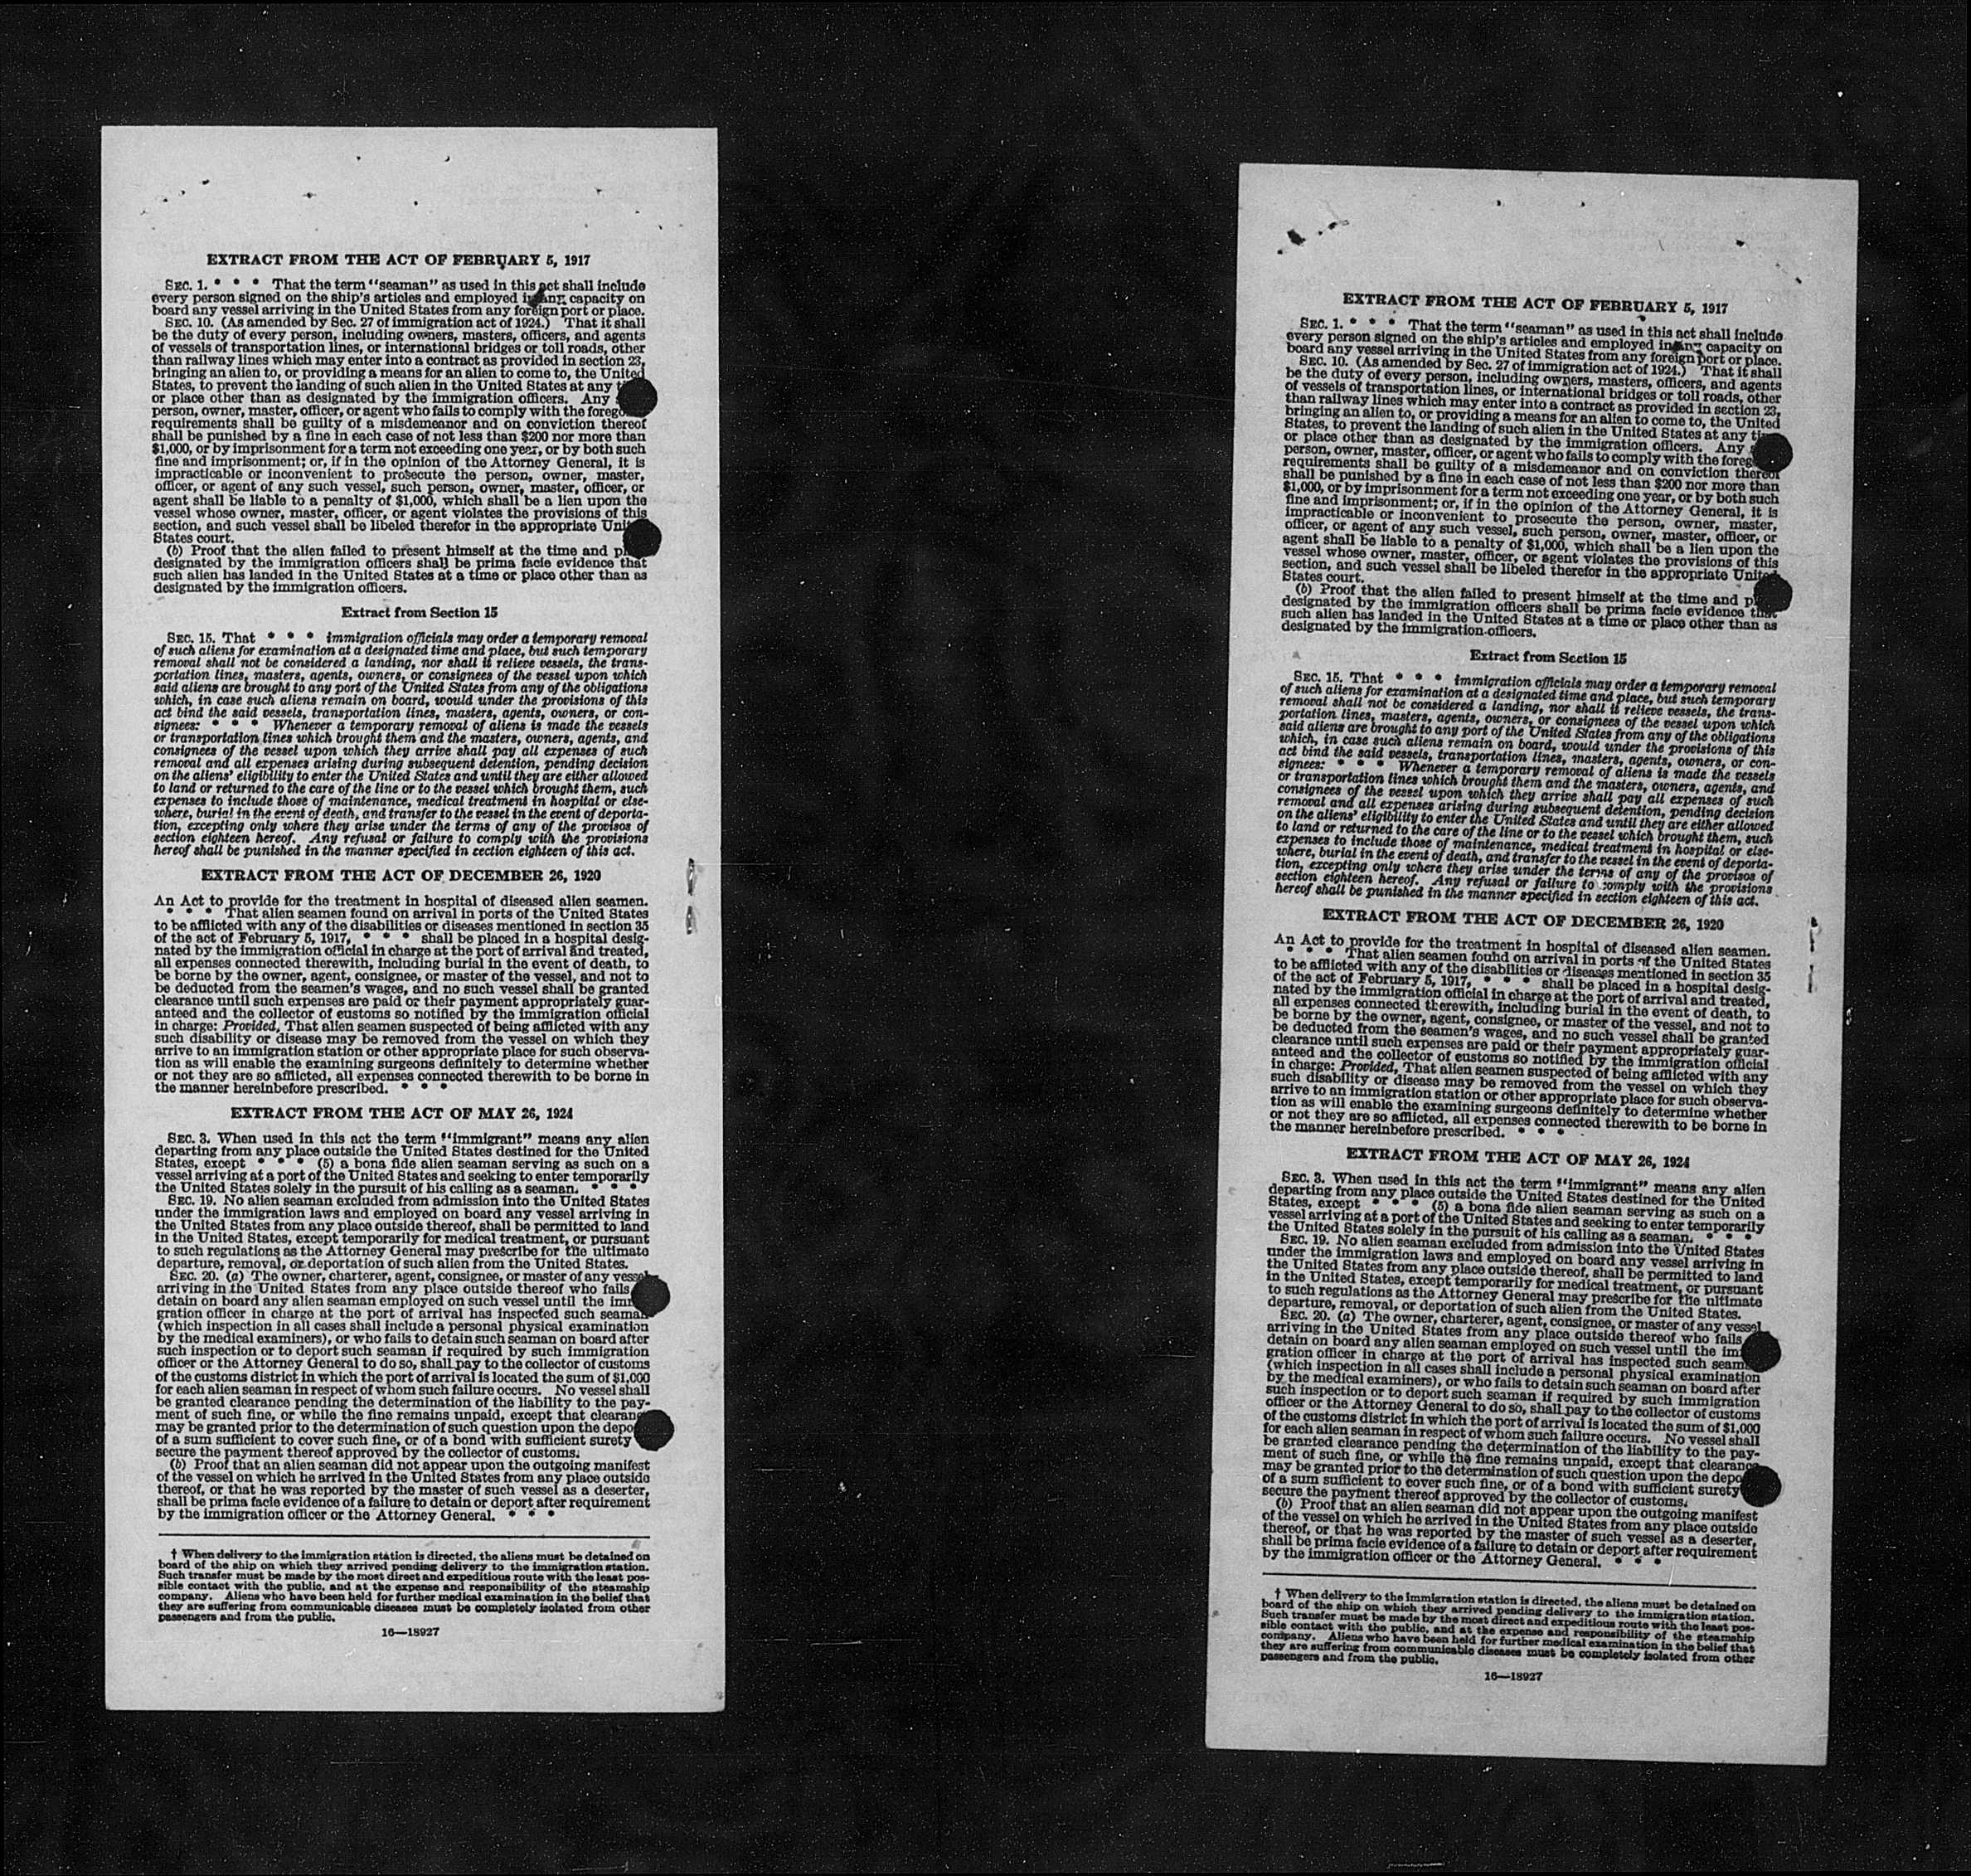 EXTRACT FROM THE ACT OF FEBRUARY 5, 1917
SEC. 1. * * * That the term "seaman" as used in this act shall include
every person signed on the ship's articles and employed in any capacity on
board any vessel arriving in the United States from any foreign port or place.
SEC. 10. (As amended by Sec. 27 of immigration act of 1924.) That it shall
be the duty of every person, including owners, masters, officers, and agents
of vessels of transportation lines, or international bridges or toll roads, other
than railway lines which may enter into a contract as provided in section 23,
bringing an alien to, or providing a means for an alien to come to, the United
States, to prevent the landing of such alien in the United States at any
or place other than as designated by the immigration officers. Any
person, owner, master, officer, or agent who fails to comply with the
requirements shall be guilty of a misdemeanor and on conviction thereof
shall be punished by a fine in each case of not less than $200 nor more than
$1,000, or by imprisonment for a term not exceeding one year, or by both such
fine and imprisonment; or, if in the opinion of the Attorney General, it is
impracticable or inconvenient to prosecute the person, owner, master,
officer, or agent of any such vessel, such person, owner, master, officer, or
agent shall be liable to a penalty of $1,000, which shall be a lien upon the
vessel whose owner, master, officer, or agent violates the provisions of this
section, and such vessel shall be libeled therefor in the appropriate
States court.
(b) Proof that the alien failed to present himself at the time and
designated by the immigration officers shall be prima facie evidence that
such alien has landed in the United States at a time or place other than as
designated by the immigration officers.
Extract from Section 15
SEC. 15. That * * * immigration officials may order a temporary removal
of such aliens for examination at a designated time and place, but such temporary
removal shall not be considered a landing, nor shall it relieve vessels, the trans-
portation lines, masters, agents, owners, or consignees of the vessel upon which
said aliens are brought to any port of the United States from any of the obligations
which, in case such aliens remain on board, would under the provisions of this
act bind the said vessels, transportation lines, masters, agents, owners, or con-
signees: * * * Whenever a temporary removal of aliens is made the vessels
or transportation lines which brought them and the masters, owners, agents, and
consignees of the vessel upon which they arrive shall pay all expenses of such
removal and all expenses arising during subsequent detention, pending decision
on the aliens' eligibility to enter the United States and until they are either allowed
to land or returned to the care of the line or to the vessel which brought them, such
expenses to include those of maintenance, medical treatment in hospital or else-
where, burial in the event of death, and transfer to the vessel in the event of deporta-
tion, excepting only where they arise under the terms of any of the provisos of
section eighteen hereof. Any refusal or failure to comply with the provisions
hereof shall be punished in the manner specified in section eighteen of this act.
EXTRACT FROM THE ACT OF DECEMBER 26, 1920
An Act to provide for the treatment in hospital of diseased alien seamen.
* * * That alien seamen found on arrival in ports of the United States
to be afflicted with any of the disabilities or diseases mentioned in section 35
of the act of February 5, 1917, * * * shall be placed in a hospital desig-
nated by the immigration official in charge at the port of arrival and treated,
all expenses connected therewith, including burial in the event of death, to
be borne by the owner, agent, consignee, or master of the vessel, and not to
be deducted from the seamen's wages, and no such vessel shall be granted
clearance until such expenses are paid or their payment appropriately guar-
anteed and the collector of customs so notified by the immigration official
in charge: Provided, That alien seamen suspected of being afflicted with any
such disability or disease may be removed from the vessel on which they
arrive to an immigration station or other appropriate place for such observa-
tion as will enable the examining surgeons definitely to determine whether
or not they are so afflicted, all expenses connected therewith to be borne in
the manner hereinbefore prescribed. * * *
EXTRACT FROM THE ACT OF MAY 26, 1924
SEC. 3. When used in this act the term "immigrant" means any alien
departing from any place outside the United States destined for the United
States, except * * * (5) a bona fide alien seaman serving as such on a
vessel arriving at a port of the United States and seeking to enter temporarily
the United States solely in the pursuit of his calling as a seaman. * * *
SEC. 19. No alien seaman excluded from admission into the United States
under the immigration laws and employed on board any vessel arriving in
the United States from any place outside thereof, shall be permitted to land
in the United States, except temporarily for medical treatment, or pursuant
to such regulations as the Attorney General may prescribe for the ultimate
departure, removal, or deportation of such alien from the United States.
SEC. 20. (a) The owner, charterer, agent, consignee, or master of any vessel
arriving in the United States from any place outside thereof who fails
detain on board any alien seaman employed on such vessel until the
gration officer in charge at the port of arrival has inspected such seaman
(which inspection in all cases shall include a personal physical examination
by the medical examiners), or who fails to detain such seaman on board after
such inspection or to deport such seaman if required by such immigration
officer or the Attorney General to do so, shall pay to the collector of customs
of the customs district in which the port of arrival is located the sum of $1,000
for each alien seaman in respect of whom such failure occurs. No vessel shall
be granted clearance pending the determination of the liability to the pay-
ment of such fine, or while the fine remains unpaid, except that clearance
may be granted prior to the determination of such question upon the
of a sum sufficient to cover such fine, or of a bond with sufficient surety
secure the payment thereof approved by the collector of customs.
(b) Proof that an alien seaman did not appear upon the outgoing manifest
of the vessel on which he arrived in the United States from any place outside
thereof, or that he was reported by the master of such vessel as a deserter,
shall be prima facie evidence of a failure to detain or deport after requirement
by the immigration officer or the Attorney General. * * *
† When delivery to the immigration station is directed, the aliens must be detained on
board of the ship on which they arrived pending delivery to the immigration station.
Such transfer must be made by the most direct and expeditious route with the least pos-
sible contact with the public, and at the expense and responsibility of the steamship
company. Aliens who have been held for further medical examination in the belief that
they are suffering from communicable diseases must be completely isolated from other
passengers and from the public.
16—18927
EXTRACT FROM THE ACT OF FEBRUARY 5, 1917
SEC. 1. * * * That the term "seaman" as used in this act shall include
every person signed on the ship's articles and employed in any capacity on
board any vessel arriving in the United States from any foreign port or place.
SEC. 10. (As amended by Sec. 27 of immigration act of 1924.) That it shall
be the duty of every person, including owners, masters, officers, and agents
of vessels of transportation lines, or international bridges or toll roads, other
than railway lines which may enter into a contract as provided in section 23,
bringing an alien to, or providing a means for an alien to come to, the United
States, to prevent the landing of such alien in the United States at any
or place other than as designated by the immigration officers. Any
person, owner, master, officer, or agent who fails to comply with the
requirements shall be guilty of a misdemeanor and on conviction thereof
shall be punished by a fine in each case of not less than $200 nor more than
$1,000, or by imprisonment for a term not exceeding one year, or by both such
fine and imprisonment; or, if in the opinion of the Attorney General, it is
impracticable or inconvenient to prosecute the person, owner, master,
officer, or agent of any such vessel, such person, owner, master, officer, or
agent shall be liable to a penalty of $1,000, which shall be a lien upon the
vessel whose owner, master, officer, or agent violates the provisions of this
section, and such vessel shall be libeled therefor in the appropriate
States court.
(b) Proof that the alien failed to present himself at the time and
designated by the immigration officers shall be prima facie evidence that
such alien has landed in the United States at a time or place other than as
designated by the immigration officers.
Extract from Section 15
SEC. 15. That * * * immigration officials may order a temporary removal
of such aliens for examination at a designated time and place, but such temporary
removal shall not be considered a landing, nor shall it relieve vessels, the trans-
portation lines, masters, agents, owners, or consignees of the vessel upon which
said aliens are brought to any port of the United States from any of the obligations
which, in case such aliens remain on board, would under the provisions of this
act bind the said vessels, transportation lines, masters, agents, owners, or con-
signees: * * * Whenever a temporary removal of aliens is made the vessels
or transportation lines which brought them and the masters, owners, agents, and
consignees of the vessel upon which they arrive shall pay all expenses of such
removal and all expenses arising during subsequent detention, pending decision
on the aliens' eligibility to enter the United States and until they are either allowed
to land or returned to the care of the line or to the vessel which brought them, such
expenses to include those of maintenance, medical treatment in hospital or else-
where, burial in the event of death, and transfer to the vessel in the event of deporta-
tion, excepting only where they arise under the terms of any of the provisos of
section eighteen hereof. Any refusal or failure to comply with the provisions
hereof shall be punished in the manner specified in section eighteen of this act.
EXTRACT FROM THE ACT OF DECEMBER 26, 1920
An Act to provide for the treatment in hospital of diseased alien seamen.
* * * * That alien seamen found on arrival in ports of the United States
to be afflicted with any of the disabilities or diseases mentioned in section 35
of the act of February 5, 1917, * * * shall be placed in a hospital desig-
nated by the immigration official in charge at the port of arrival and treated,
all expenses connected therewith, including burial in the event of death, to
be borne by the owner, agent, consignee, or master of the vessel, and not to
be deducted from the seamen's wages, and no such vessel shall be granted
clearance until such expenses are paid or their payment appropriately guar-
anteed and the collector of customs so notified by the immigration official
in charge: Provided, That alien seamen suspected of being afflicted with any
such disability or disease may be removed from the vessel on which they
arrive to an immigration station or other appropriate place for such observa-
tion as will enable the examining surgeons definitely to determine whether
or not they are so afflicted, all expenses connected therewith to be borne in
the manner hereinbefore prescribed. * * *
EXTRACT FROM THE ACT OF MAY 26, 1924
SEC. 3. When used in this act the term "immigrant" means any alien
departing from any place outside the United States destined for the United
States, except * * * (5) a bona fide alien seaman serving as such on a
vessel arriving at a port of the United States and seeking to enter temporarily
the United States solely in the pursuit of his calling as a seaman. * * *
SEC. 19. No alien seaman excluded from admission into the United States
under the immigration laws and employed on board any vessel arriving in
the United States from any place outside thereof, shall be permitted to land
in the United States, except temporarily for medical treatment, or pursuant
to such regulations as the Attorney General may prescribe for the ultimate
departure, removal, or deportation of such alien from the United States.
SEC. 20. (a) The owner, charterer, agent, consignee, or master of any vessel
arriving in the United States from any place outside thereof who fails
detain on board any alien seaman employed on such vessel until the
gration officer in charge at the port of arrival has inspected such
(which inspection in all cases shall include a personal physical examination
by the medical examiners), or who fails to detain such seaman on board after
such inspection or to deport such seaman if required by such immigration
officer or the Attorney General to do so, shall pay to the collector of customs
of the customs district in which the port of arrival is located the sum of $1,000
for each alien seaman in respect of whom such failure occurs. No vessel shall
be granted clearance pending the determination of the liability to the pay-
ment of such fine, or while the fine remains unpaid, except that clearance
may be granted prior to the determination of such question upon the
of a sum sufficient to cover such fine, or of a bond with sufficient surety
secure the payment thereof approved by the collector of customs.
(b) Proof that an alien seaman did not appear upon the outgoing manifest
of the vessel on which he arrived in the United States from any place outside
thereof, or that he was reported by the master of such vessel as a deserter,
shall be prima facie evidence of a failure to detain or deport after requirement
by the immigration officer or the Attorney General. * * *
† When delivery to the immigration station is directed, the aliens must be detained on
board of the ship on which they arrived pending delivery to the immigration station.
Such transfer must be made by the most direct and expeditious route with the least pos-
sible contact with the public, and at the expense and responsibility of the steamship
company. Aliens who have been held for further medical examination in the belief that
they are suffering from communicable diseases must be completely isolated from other
passengers and from the public.
16—18927